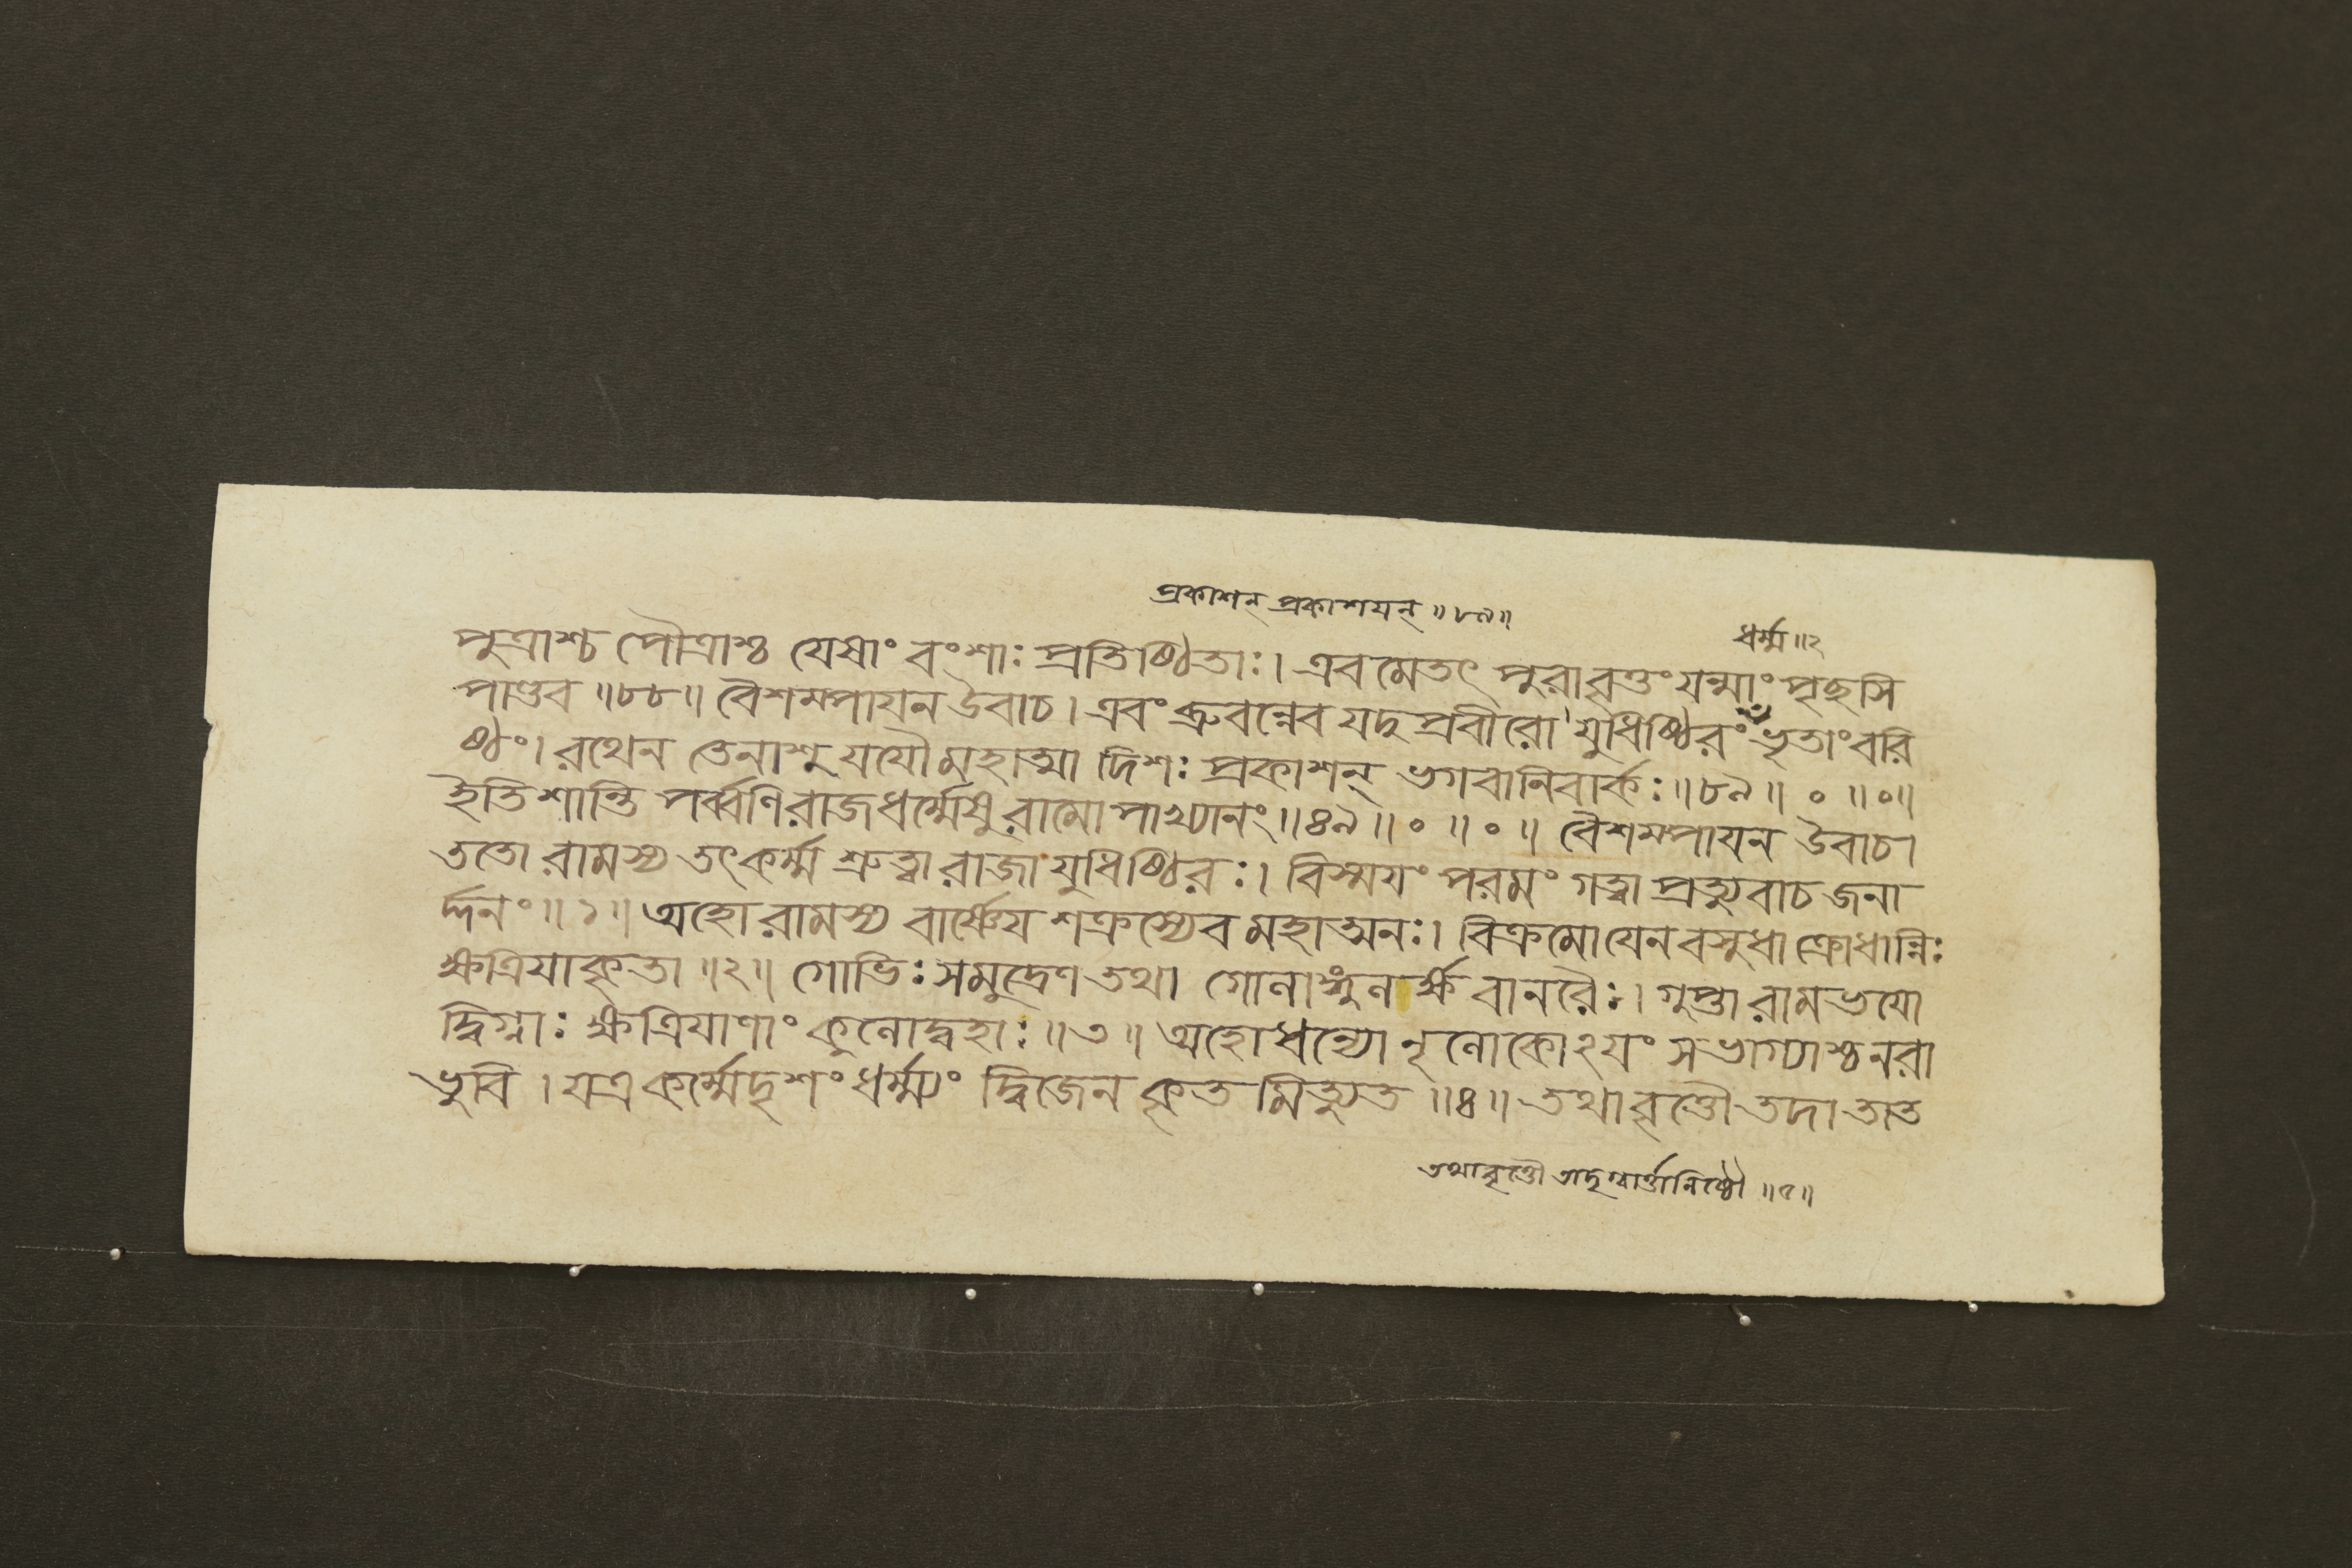 প্রকাশন্ প্রকাশয়ন্ ॥৮৯॥
ধর্ম্ম ॥২
পুত্রাশ্চ পৌত্রাশ্চ যেষাং বংশাঃ প্রতিষ্ঠিতাঃ। এবমেতৎ পুরাবৃত্তং যন্মাং পৃছসি
পাণ্ডব ॥৮৮॥ বৈশম্পায়ন উবাচ। এবং ব্রুবন্নেব যদুপ্রবীরো যুধিষ্ঠিরং ভৃতাং বরি
ষ্ঠং। রথেন তেনাশু যযৌ মহাত্মা দিশঃ প্রকাশন্ ভগবানিবার্কঃ ॥৮৯॥ ० ॥०॥
ইতি শান্তি পর্ব্বণি রাজধর্ম্মেষু রামোপাখ্যানং ॥৪৯॥ ० ॥ ० ॥ বৈশম্পায়ন উবাচ।
ততো রামস্য তৎ কর্ম্ম শ্রুত্বা রাজা যুধিষ্ঠিরঃ। বিস্ময়ং পরমং গত্বা প্রত্যুবাচ জনা
র্দ্দনং ॥১॥ অহো রামস্য বার্ষ্ণেয় শক্রস্যেব মহাত্মনঃ। বিক্রমো যেন বসুধা ক্রোধান্নিঃ
ক্ষত্রিয়া কৃতা ॥২॥ গোভিঃ সমুদ্রেণ তথা গোলাঙ্গুলর্ক্ষ বানরৈঃ। গুপ্তা রামভয়ো
দ্বিগ্নাঃ ক্ষত্রিয়াণাং কুলোদ্বহাঃ ॥৩॥ অহো ধন্যো নৃলোকোঽয়ং সভাগ্যাশ্চ নরা
ভুবি। যত্র কর্ম্মেদৃশং ধর্ম্ম্যং দ্বিজেন কৃতমিত্যুত ॥৪॥ তথাবৃত্তৌ তদা তাত
তথাবৃত্তৌ তাদৃগ্বার্ত্তানিষ্ঠৌ ॥৫॥